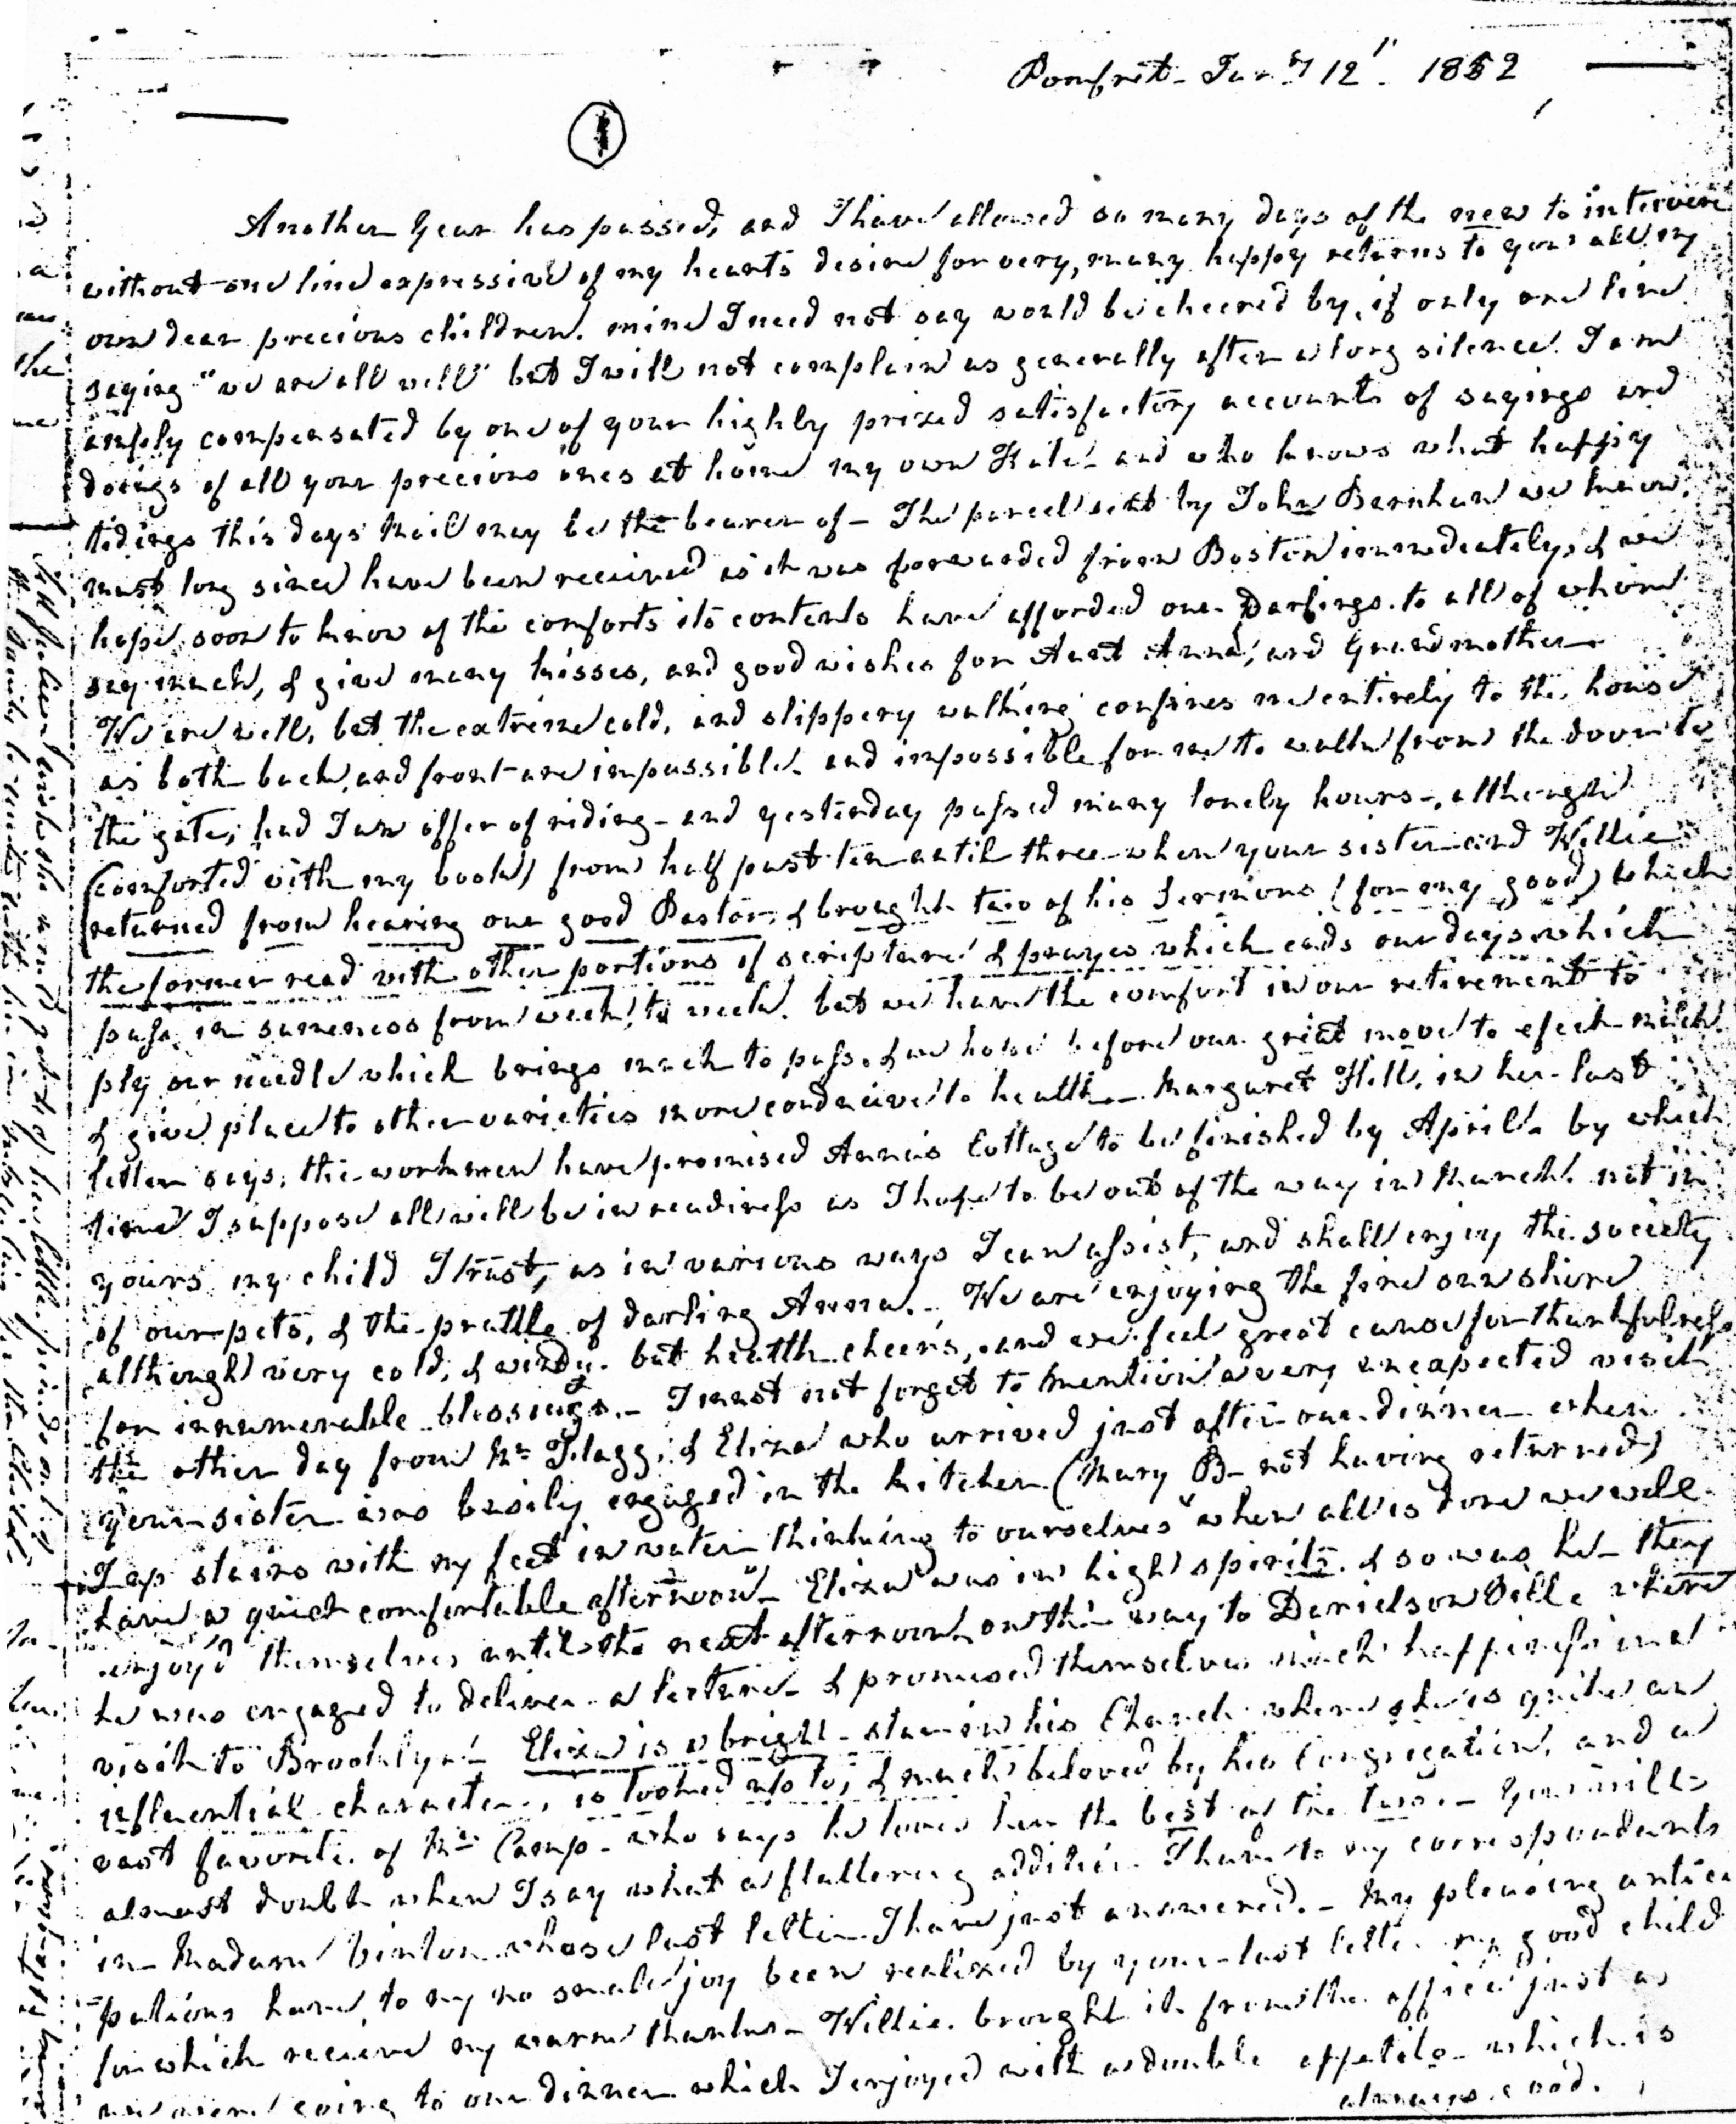 Pomfret - Jany 12" 1852
1
Another Year has passed, and I have allowed so many days of the new to intervene
without one line expressive of my hearts desire for very, many happy returns to you all my
own dear precious children. mine I need not say would be cheered by, if only one line
saying "we are all well" but I will not complain as generally after a long silence I am
amply compensated by one of your highly prized satisfactory accounts of sayings and
doings of all your precious ones at home my own Kate - and who knows what happy
tidings this days Mail may be the bearer of - The parcel sent by John Barnham we know
must long since have been received as it was forwarded from Boston immediately, & we
hope soon to know of the comforts its contents have afforded our Darlings. to all of whom
say much, & give many kisses, and good wishes for Aunt Anna, and Grandmother
We are well, but the extreme cold, and slippery walking confines me entirely to the house
as both back, and front are impassible - and impossible for me to walk from the door to
the gate, had I an offer of riding - and yesterday passed many lonely hours -, although
(comforted with my book) from half past ten until three - when your sister and Willie
returned from hearing our good Pastor, & brought two of his Sermons (for my good) which
the former read with other portions of scripture & prayer which ends our days which
pass in sameness from week, to week. but we have the comfort in our retirement to
ply our needle which brings much to pass, & we hope before our great move to efect much
& give place to other varieties more conducive to health - Margaret Hill, in her last
letter says, the workmen have promised Anna's Cottage to be finished by April - by which
time I suppose all will be in readiness as I hope to be out of the way in March. not in
yours my child I trust, as in various ways I can assist, and shall enjoy the society
of our pets, & the prattle of darling Anna. - We are enjoying the fine sun shine
although very cold, & windy. but health cheers, and we feel great cause for thankfulness
for innumerable blessings. - I must not forget to mention a very unexpected visit
the other day from Mr Flagg, & Eliza who arrived just after our dinner when
your sister was busily engaged in the kitchen (Mary B - not having returned)
I up stairs with my feet in water - thinking to ourselves "when all is done we will
have a quiet comfortable afternoon" - Eliza was in high spirits, & so was he - they
enjoy'd themselves until the next afternoon on the way to Danielson Ville where
he was engaged to deliver a lecture - & promised themselves much happiness in a
visit to Brooklyn - Eliza is a bright star in his Church where she is quite an
influential character, is looked up to, & much beloved by his Congregation, and a
vast favorite of Mr Camp - who says he loves her the best of the two. - You will
almost doubt when I say what a flattering addition I have to my correspondents
in Madam Vinton whose last letter I have just answered. - My pleasing antici
pations have to my no small joy been realized by your last letter my good child
for which receive my warm thanks - Willie brought it from the office just as
we were going to our dinner which I enjoyed with a double appetite - which is
always good.